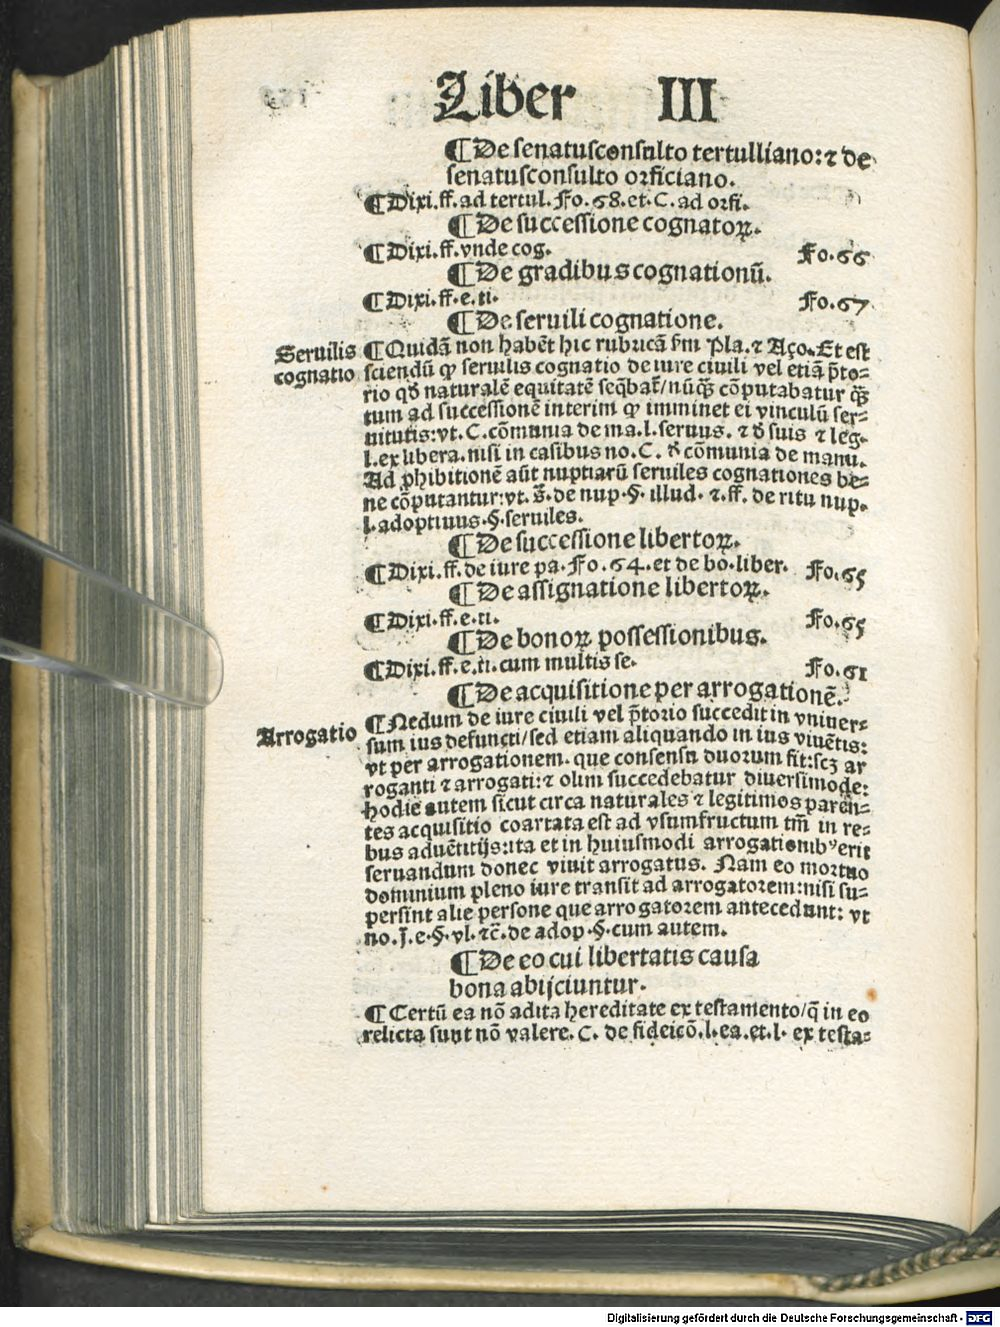 Liber III
¶De senatusconsulto tertulliano: ⁊ de
senatusconsulto orficiano.
¶Dixi.ff.ad tertul.Fo.68.et.C.ad orfi.
¶De successione cognatoꝝ.
¶Dixi.ff.vnde cog. Fo.66
¶De gradibus cognationū.
¶Dixi.ff.e.ti. Fo.67
¶De seruili cognatione.
Seruilis cognatio
¶Quidā non habēt hic rubricā ẜm Pla.⁊ Aço.Et est
sciendū ꝙ seruilis cognatio de iure ciuili vel etiā p̄to-
rio qđ naturalē equitatē seq̄bat̄/nūq̄ȝ cōputabatur q̄ȝ
tum ad successionē interim ꝙ imminet ei vinculū ser-
uitutis:vt.C.cōmunia de ma.l.seruus. ⁊ đ suis ⁊ leg.
l.ex libera.nisi in casibus no.C. đ cōmunia de manu.
Ad ꝓhibitionē aūt nuptiarū seruiles cognationes be-
ne cōputantur:vt. s̄. de nup.§. illud. ⁊.ff. de ritu nup.
l.adoptiuus.§.seruiles.
¶De successione libertoꝝ.
¶Dixi.ff.de iure pa.Fo.64.et de bo.liber. Fo.65
¶De assignatione libertoꝝ.
¶Dixi.ff.e.ti. Fo.65
¶De bonoꝝ possessionibus.
¶Dixi.ff.e.ti.cum multis se. Fo.61
¶De acquisitione per arrogationē.
Arrogatio
¶Nedum de iure ciuili vel p̄torio succedit in vniuer-
sum ius defuncti/sed etiam aliquando in ius viuētis:
vt per arrogationem.que consensu duorum fit:scȝ ar
roganti ⁊ arrogati:⁊ olim succedebatur diuersimode:
hodie autem sicut circa naturales ⁊ legitimos parēn-
tes acquisitio coartata est ad vsumfructum tm̄ in re-
bus aduētitijs:ita et in huiusmodi arrogationibꝰ erit
seruandum donec viuit arrogatus. Nam eo mortuo
dominium pleno iure transit ad arrogatorem:nisi su-
persint alie persone que arrogatorem antecedunt: vt
no.J.e.§.vl.⁊c̄.de adop.§.cum autem.
¶De eo cui libertatis causa
bona abijciuntur.
¶Certū ea nō adita hereditate ex testamento/q̄ in eo
relicta sunt nō valere.C. de fideicō.l.ea.et.l. ex testa-
Digitalisierung gefördert durch die Deutsche Forschungsgemeinschaft - DFG